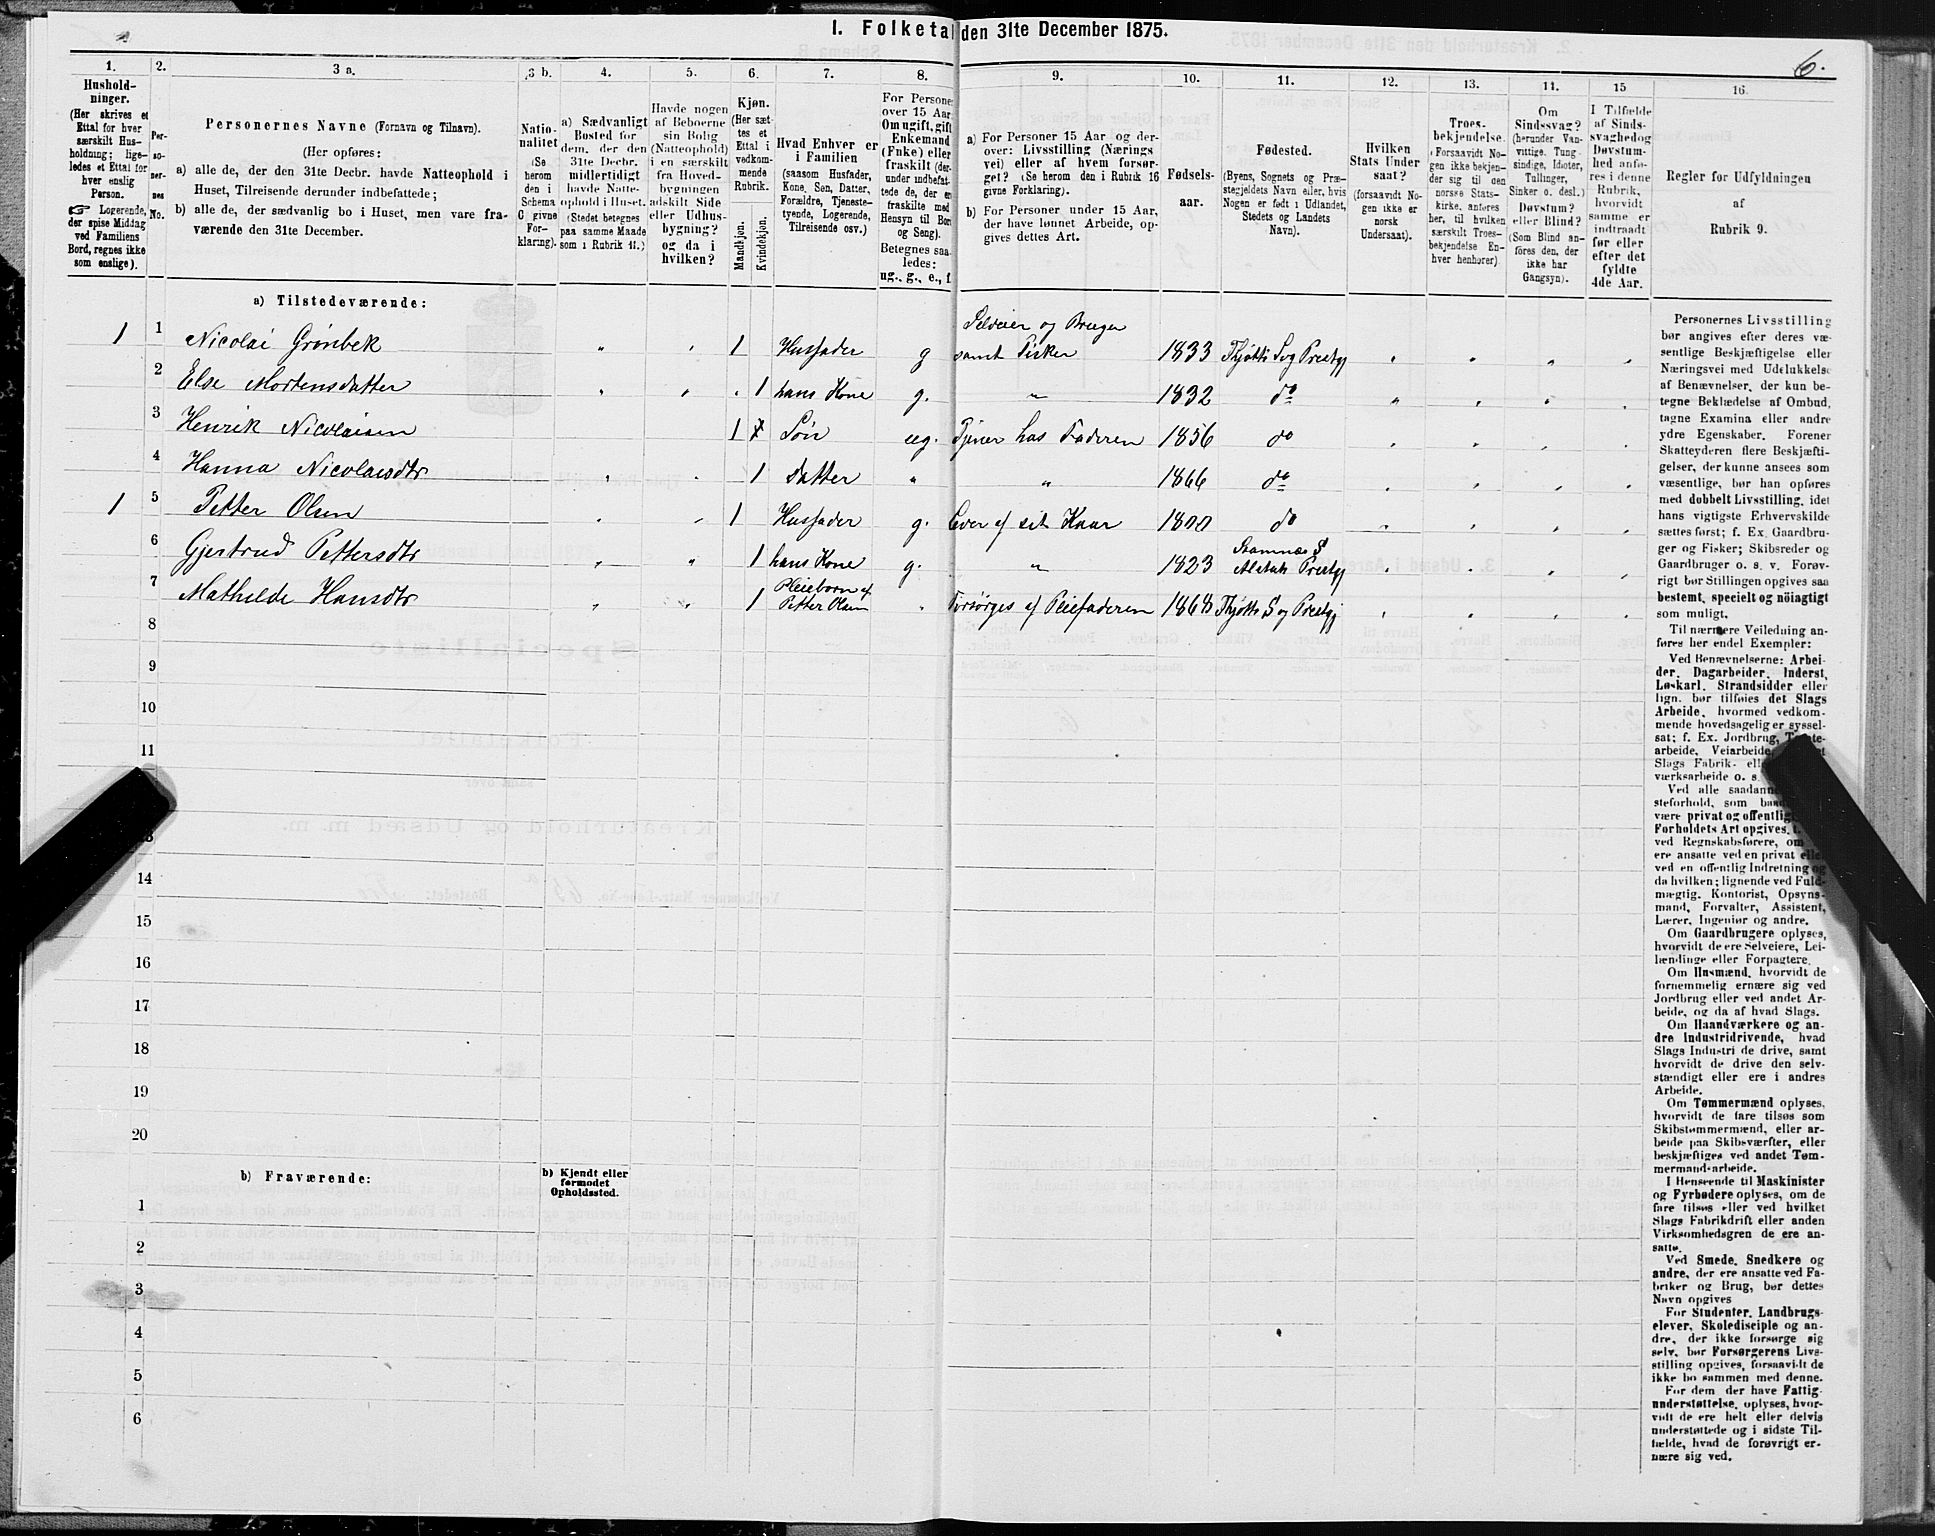 1. Folketal den 31te December 1875.
6.
1.
Hushold-
ninger.
(Her skrives et
Ettal for hver
særskilt Hus-
holdning; lige-
ledes et Ettal for
hver enslig
Person.
☞ Logerende,
der spise Middag
ved Familiens
Bord, regnes ikke
som enslige).
2.
Per-
so-
ner-
nes
No.
3 a.
Personernes Navne (Fornavn og Tilnavn).
(Her opføres:
a) alle de, der den 31te Decbr. havde Natteophold i
Huset, Tilreisende derunder indbefattede;
b) alle de, der sædvanlig bo i Huset, men vare fra-
værende den 31te December.
3 b.
Natio-
nalitet
(Se
herom
den i
Schema
C givne
For-
klaring).
4.
a) Sædvanligt
Bosted for
dem, der den
31te Decbr.
midlertidigt
havde Natte-
ophold i Huset.
(Stedet betegnes
paa samme Maade
som i Rubrik 11.)
5.
Havde nogen
af Beboerne
sin Bolig
(Natteophold)
i en særskilt
fra Hoved-
bygningen
adskilt Side
eller Udhus-
bygning?
og da i
hvilken?
6.
Kjøn.
(Her sæt-
tes et
Ettal i
vedkom-
mende
Rubrik.
Mandkjøn.
Kvindekjøn.
7.
Hvad Enhver er
i Familien
(saasom Husfader,
Kone, Søn, Datter,
Forældre, Tjeneste-
tyende, Logerende,
Tilreisende osv.)
8.
For Personer
over 15 Aar:
Om ugift, gift,
Enkemand
(Enke) eller
fraskilt (der-
under indbefat-
tede de, der ere
fraskilte med
Hensyn til Bord
og Seng).
Betegnes saa-
ledes:
ug., g., e., f.
9.
a) For Personer 15 Aar og der-
over: Livsstilling (Nærings-
vei) eller af hvem forsør-
get? (Se herom den i Rubrik 16
givne Forklaring).
b) For Personer under 15 Aar,
der have lønnet Arbeide, op-
gives dettes Art.
10.
Fødsels-
aar.
11.
Fødested.
(Byens, Sognets og Præ-
stegjeldets Navn eller, hvis
Nogen er født i Udlandet,
Stedets og Landets
Navn).
12.
Hvilken
Stats Under
saat?
(forsaavidt No-
gen ikke er
norsk
Undersaat).
13.
Troes-
bekjendelse.
(Forsaavidt No-
gen ikke bekjen-
der sig til den
norske Stats-
kirke, anføres
her, til hvilken
særskilt Troes-
bekjendelse En-
hver henhører).
11.
Om
Sindssvag?
(herunder Van-
vittige, Tung-
sindige, Idioter,
Tullinger,
Sinker o. desl.)
Døvstum?
eller Blind?
(Som Blind an-
føres den, der
ikke har
Gangsyn).
15
I Tilfælde
af Sinds-
svaghed og
Døvstum-
hed anfø-
res i denne
Rubrik,
hvorvidt
samme er
indtraadt
før eller
efter det
fyldte
4de Aar.
16.
Regler for Udfyldningen
af
Rubrik 9.
a) Tilstedeværende:
1 1 Nicolai Grönbek " " 1 Husfader g Selveier og Bruger samt Fisker 1833 Thjøttø S og Prestgj
2 Else Mortensdatter 1 hans Kone g. " 1832 do
3 Henrik Nicolaisen 1 Søn ug. Tjener hos Faderen 1856 do
4 Hanna Nicolaisdtr 1 Datter " " 1866 do
1 5 Petter Olsen 1 Husfader g. Lever af sit Kaar 1800 do
6 Gjertrud Pettersdtr 1 hans Kone g. " 1823 Stamnæs S Alstah Prestgj
7 Mathilde Hansdtr 1 Pleiebarn af Petter Olsen Forsørges af Pleiefaderen 1868 Thjøttø S og Prestgj
8
9
10
11
13
14
15
16
17
18
19
20
b) Fraværende:
b) Kjendt eller
formodet
Opholdssted.
1
2
3
4
5
6
Personernes Livsstilling
bør angives efter deres væ-
sentlige Beskjæftigelse eller
Næringsvei med Udelukkelse
af Benævnelser, der kun be-
tegne Beklædelse af Ombud,
tagne Examina eller andre
ydre Egenskaber. Forener
Skatteyderen flere Beskjæfti-
gelser, der kunne ansees som
væsentlige, bør han opføres
med dobbelt Livsstilling, idet
hans vigtigste Erhvervskilde
sættes først; f. Ex. Gaardbru-
ger og Fisker; Skibsreder og
Gaardbruger o. s. v. Forøv-
rigt bør Stillingen opgives saa
bestemt, specielt og nöiagtigt
som muligt.
Til nærmere Veiledning an-
føres her endel Exempler:
Ved Benævnelserne: Arbei-
der, Dagarbeider, Inderst,
Løskarl, Strandsidder eller
lign. bør tilføies det Slags
Arbeide, hvormed vedkom-
mende hovedsagelig er syssel-
sat; f. Ex. Jordbrug,
arbeide, Veiarbeide,
Slags Fabrik-
værksarbeide o. s.
Ved alle saadanne
steforhold, som
være privat og offentlig,
Forholdets Art opgives,
ved Regnskabsførere, om
ere ansatte ved en privat eller
ved en offentlig Indretning og
da hvilken; lignende ved Fuld-
mægtig, Kontorist, Opsyns-
mand, Forvalter, Assistent,
Lærer, Ingeniør og andre.
Om Gaardbrugere oplyses,
hvorvidt de ere Selveiere, Lei-
lændinge eller Forpagtere.
Om Husmænd, hvorvidt de
fornemmelig ernære sig ved
Jordbrug eller ved andet Ar-
beide, og da af hvad Slags.
Om Haandværkere og an-
dre Industridrivende, hvad
Slags Industri de drive, samt
hvorvidt de drive den selv-
stændigt eller ere i andres
Arbeide.
Om Tømmermænd oplyses,
hvorvidt de fare tilsøs som
Skibstømmermænd, eller ar-
beide paa Skibsværfter, eller
beskjæftiges ved andet Tøm-
mermandsarbeide.
I Henseende til Maskinister
og Fyrbødere oplyses, om de
fare tilsøs eller ved hvilket
Slags Fabrikdrift eller anden
Virksomhedsgren de ere an-
satte.
Ved Smede, Snedkere og
andre, der ere ansatte ved Fa-
briker og Brug, bør dettes
Navn opgives
For Studenter, Landbrugs-
elever, Skoledisciple og an-
dre, der ikke forsørge sig
selv, bør Forsørgerens Livs-
stilling opgives, forsaavidt de
ikke bo sammen med denne.
For dem der have Fattig-
understøttelse, oplyses, hvor-
vidt de ere helt eller delvis
understøttede og i sidste Til-
fælde, hvad de forøvrigt er-
nære sig ved.